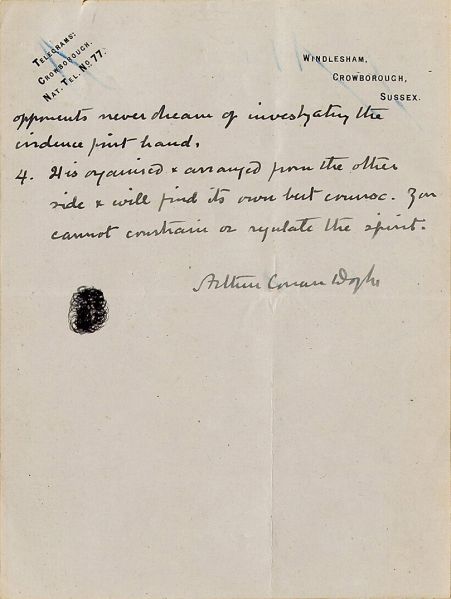 TELEGRAMS:
CROWBOROUGH.
NAT. TEL. NO. 77.
WINDLESHAM,
CROWBOROUGH,
SUSSEX.
opponents never dream of investigating the
evidence first hand.
4. It is organised & arranged from the other
side & will find its own best course. You
cannot constrain or regulate the spirit.
Arthur Conan Doyle